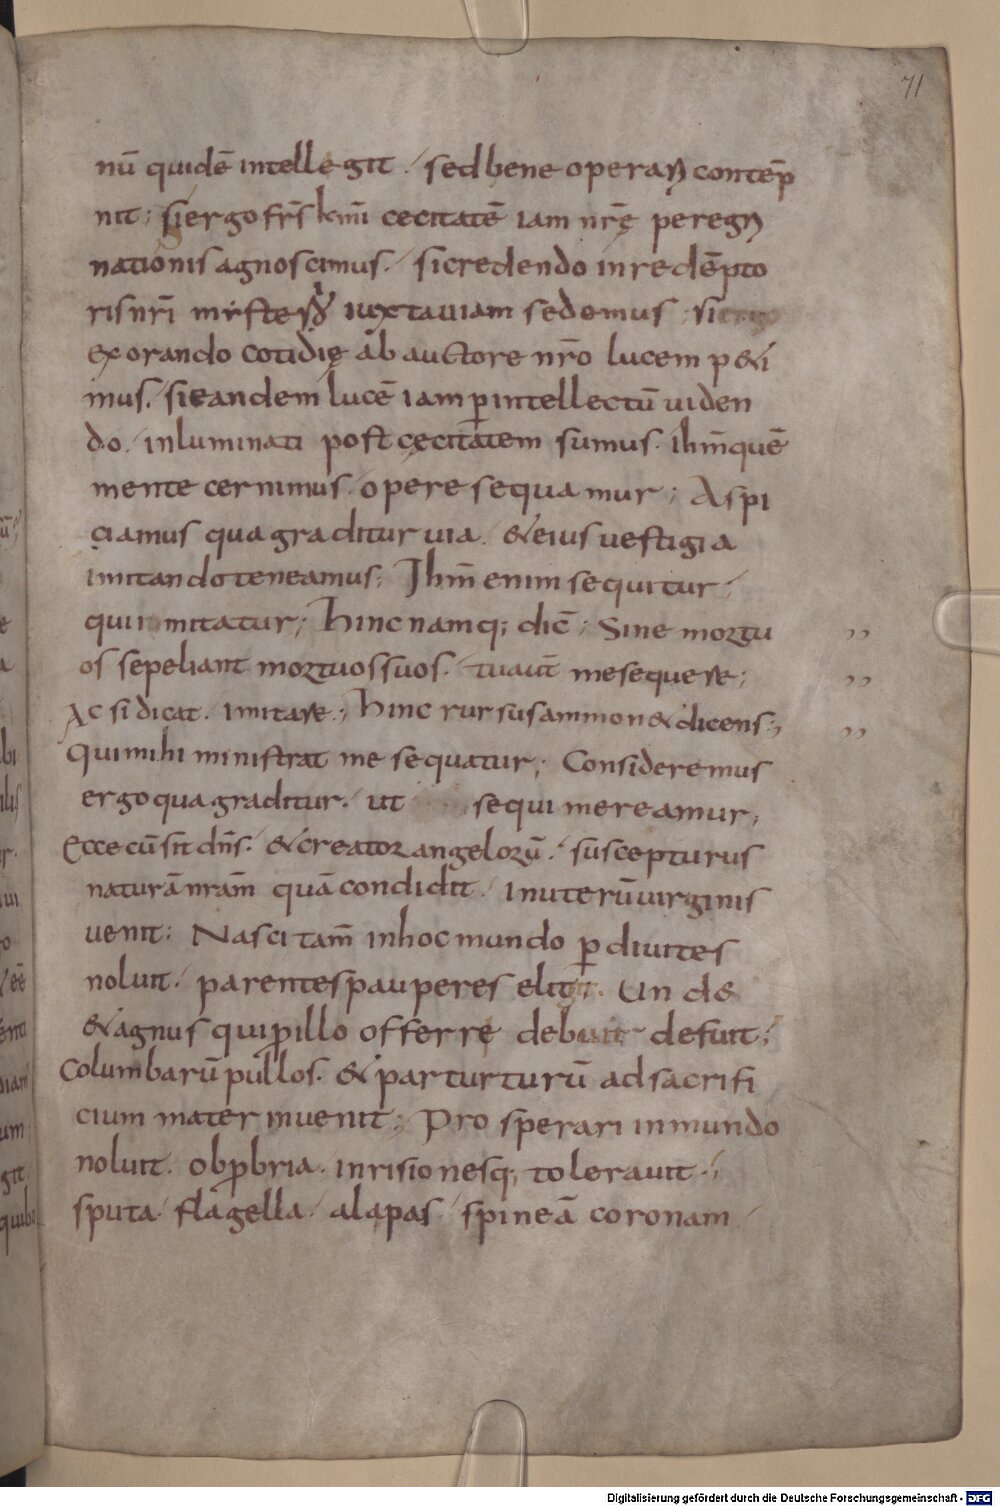 71
nū quidē intellegit. sed bene operari contēp
nit; si ergo frs kmi cecitatē iam nrę peregri
nationis agnoscimus. si credendo in redēpto
ris nri misterio iuxta uiam sedemus; si ergo
exorando cotidię ab auctore nro lucem p&i
mus. si eandem lucē iam p intellectū uiden
do. inluminati post cęcitatem sumus. ihm quē
mente cernimus. opere sequamur; Aspi
ciamus qua graditur uia. & eius uestigia
imitando teneamus; Ihm enim sequitur.
qui imitatur; Hinc namq; dic; Sine mortu
os sepeliant mortuos suos. tu aut me sequere;
Ac si dicat. imitare; Hinc rursus ammon& dicens;
Qui mihi ministrat me sequatur; Consideremus
ergo qua graditur. ut sequi mereamur;
Ecce cū sit dns. & creator angelorū. suscepturus
naturā nram quā condidit. in uterū uirginis
uenit; Nasci tam in hoc mundo p diuites
noluit. parentes pauperes elegit. Unde
& agnus qui p illo offerre debuit defuit;
Columbarū pullos. & par turturū ad sacrifi
cium mater inuenit; Prosperari in mundo
noluit. obprbria. inrisionesq; tolerauit;
sputa. flagella. alapas. spineā coronam
Digitalisierung gefördert durch die Deutsche Forschungsgemeinschaft - DFG